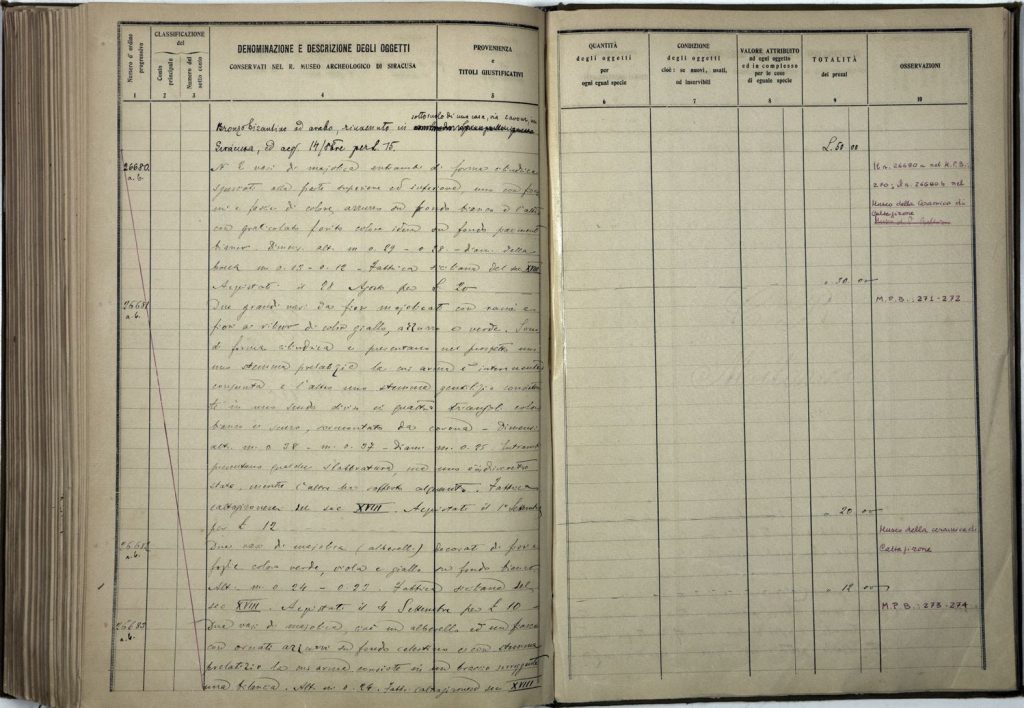 Numero d'ordine progressivo
CLASSIFICAZIONE
del
Conto principale
Numero del sotto conto
DENOMINAZIONE E DESCRIZIONE DEGLI OGGETTI
CONSERVATI NEL R. MUSEO ARCHEOLOGICO DI SIRACUSA
PROVENIENZA
e
TITOLI GIUSTIFICATIVI
1 2 3 4 5
sottosuolo di una casa, via Cavour, in
Bronzo bizantino ad arabo, rinvenuto in
Siracusa, ed acq. 14/8bre per L 75.
26680 a. b.
N. 2 vasi di majolica entrambi di forma cilindrica
sguscati alla parte superiore ed inferiore, uno con
e fascia di colore azzurro su fondo bianco e l'altro
con graticolato fiorito colore idem su fondo parimenti
bianco. Dimens. alt. m 0.29 - 0.28 - diam. della
bocca m 0.13 - 0.12 - Fattura siciliana del sec XVIII
Acquistati il 28 Agosto per £ 20
26681 a. b.
Due grandi vasi da fiori majolicati con rami e
fiori a rilievo di colore giallo, azzurro e verde. Sono
di forma cilindrica e presentano nel prospetto uno
uno stemma prelatizio la cui arma è interamente
e l'altro uno stemma gentilizio consistente
in uno scudo diviso in quattro triangoli colore
bianco e scuro, sormontato da corona - Dimens.
alt. m 0.38 - m. 0.37 - Diam. m. 0.25 Entrambi
presentano qualche slabbratura, ma uno è in discreto
stato, mentre l'altro ha sofferto alquanto. Fattura
caltagironese del sec XVIII. Acquistati il 1° Settembre
per £ 12
26682 a. b.
Due vasi di majolica (alberelli) decorati di fiori e
foglie colore verde, viola e giallo su fondo bianco.
Alt. m 0.24 - 0.23 Fattura siciliana del
sec XVIII. Acquistati il 4 Settembre per £ 10 -
26683 a. b.
Due vasi di majolica, cioè un alberello ed un
con ornati azzurri su fondo celestino e con stemma
prelatizio la cui arma consiste in un braccio sorreggente
una bilancia. Alt. m 0.24. Fatt. caltagironese sec XVIII
QUANTITÀ
degli oggetti
per
ogni egual specie
CONDIZIONE
degli oggetti
cioè: se nuovi, usati,
od inservibili
VALORE ATTRIBUITO
ad ogni oggetto
ed in complesso
per le cose
di eguale specie
TOTALITÀ
dei prezzi
OSSERVAZIONI
6 7 8 9 10
£ 50 00
Il n. 26680 a nel M.P.B.
270; Il n. 26680 b nel
Museo della Ceramica di
Caltagirone
" 20 00
M.P.B.: 271-272
" 20 00
Museo della ceramica di
Caltagirone
" 12 00
M.P.B.: 273-274